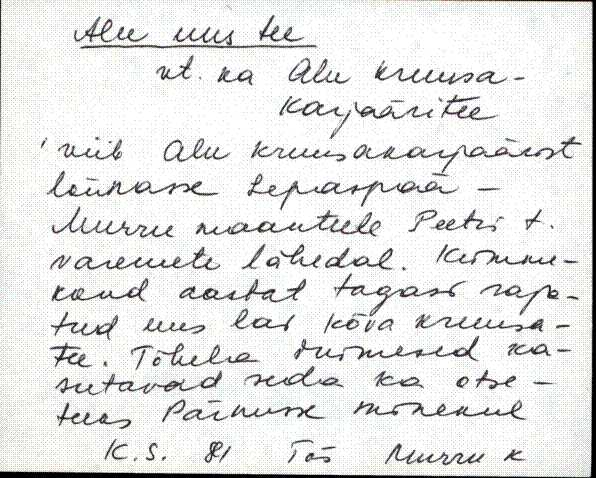 Alu uus tee
vt. ka Alu kruusa-
karjääritee
viib Alu kruusakarjäärist
lõunasse Lepaspää -
Murru maanteele Peetri t.
varemete lähedal. Kümme-
kond aastat tagasi raja-
tud uus lai kõva kruusa-
tee. Tõhela inimesed ka-
sutavad seda ka otse-
teeks Pärnusse mõnekul
K.S. 81 Tõs Murru k